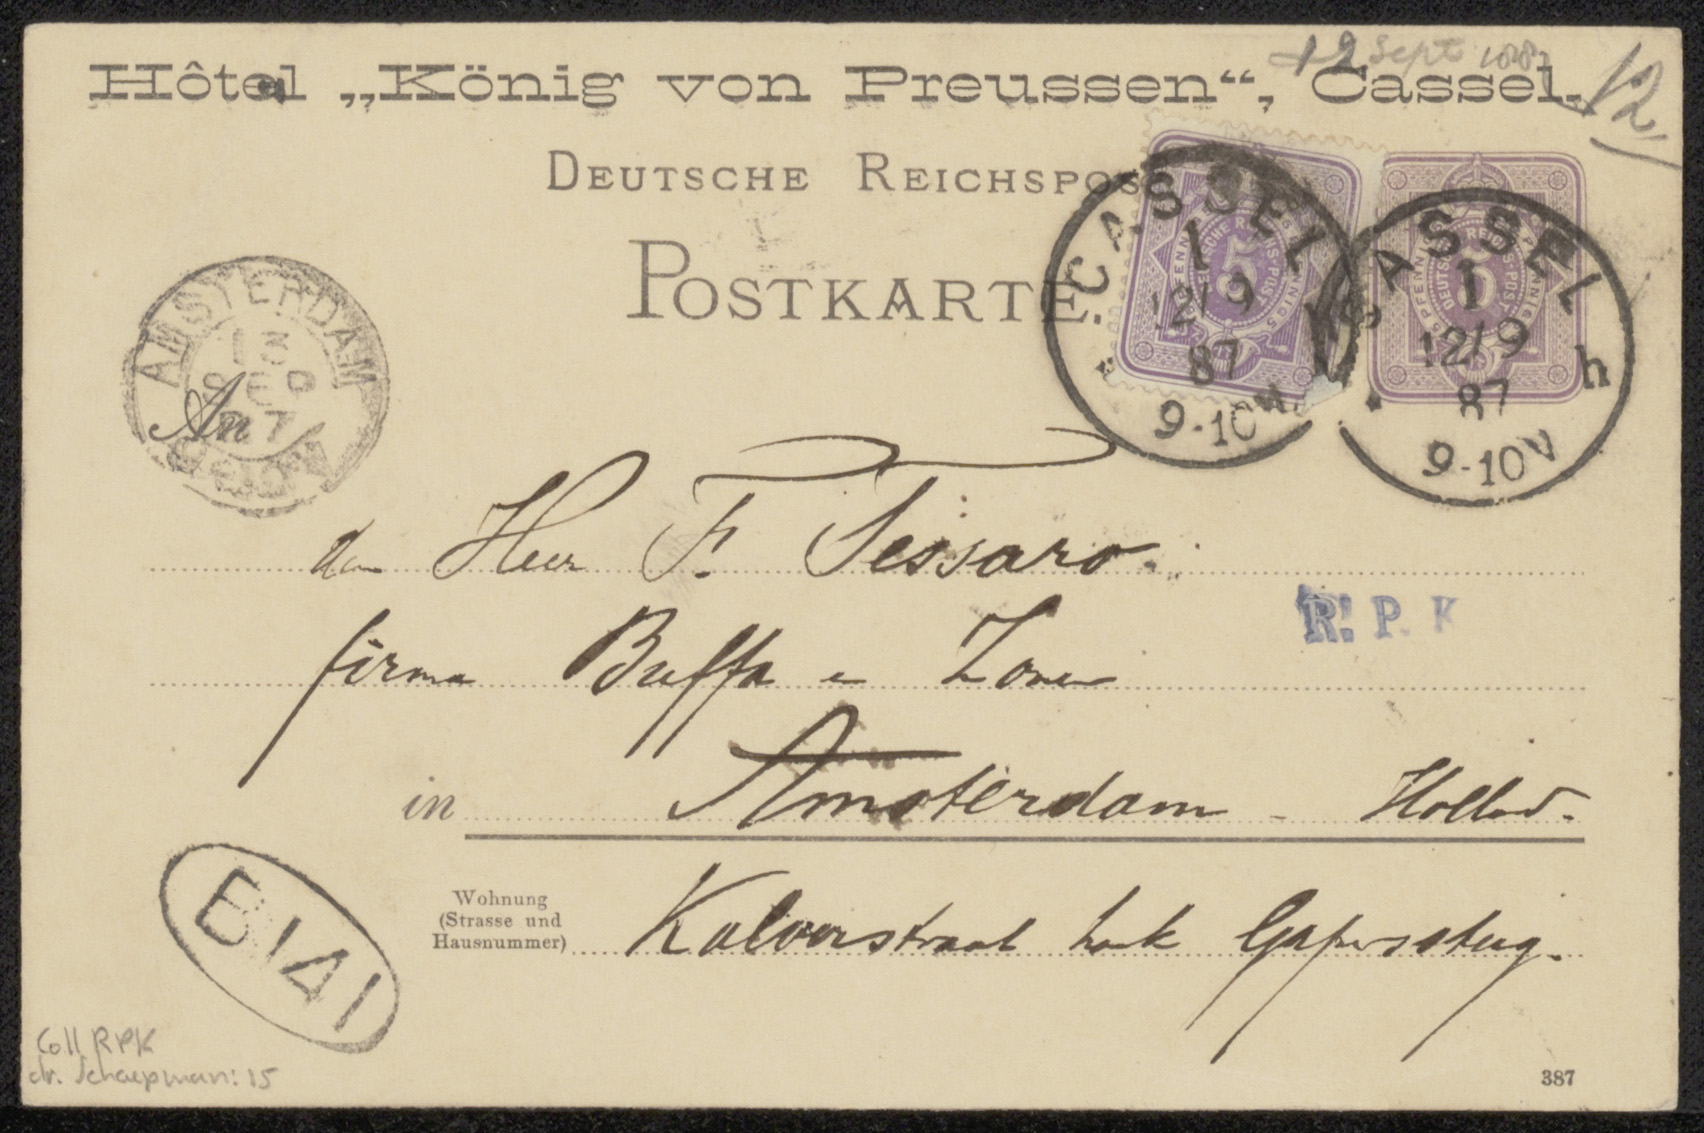 12 Sept 1887
12
Hôtel „König von Preussen“, Cassel.
DEUTSCHE REICHSPOST
POSTKARTE.
CASSEL
1
12/9
87
9-10V
CASSEL
1
12/9
87
9-10V
h
5
5
AMSTERDAM
13
SEP
87
An
den Heer F. Tessaro.
firma Buffa en Zonen
R. P. K
in Amsterdam - Holland.
Wohnung
(Strasse und
Hausnummer)
Kalverstraat hoek Gapersteeg.
B141
Coll RPK
dr. Schaepman: 15
387